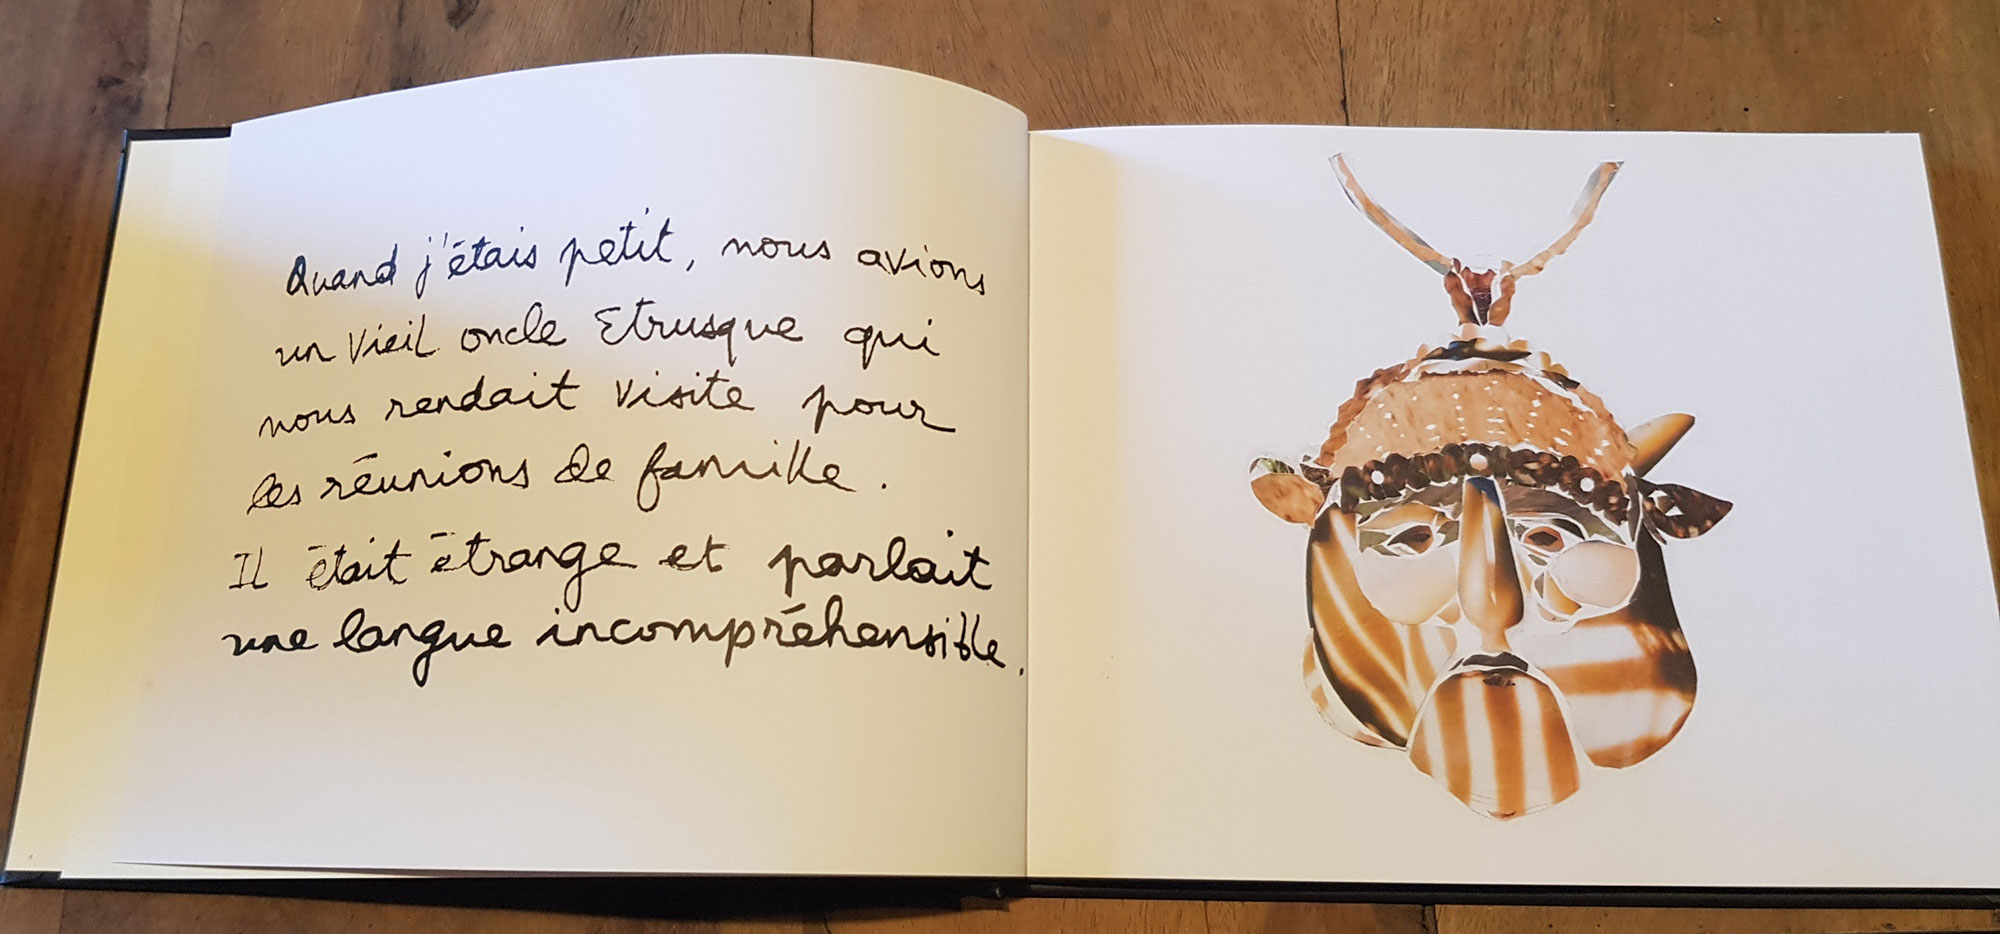 Quand j'étais petit, nous avions
un vieil oncle Etrusque qui
nous rendait visite pour
les réunions de famille.
Il était étrange et parlait
une langue incompréhensible.